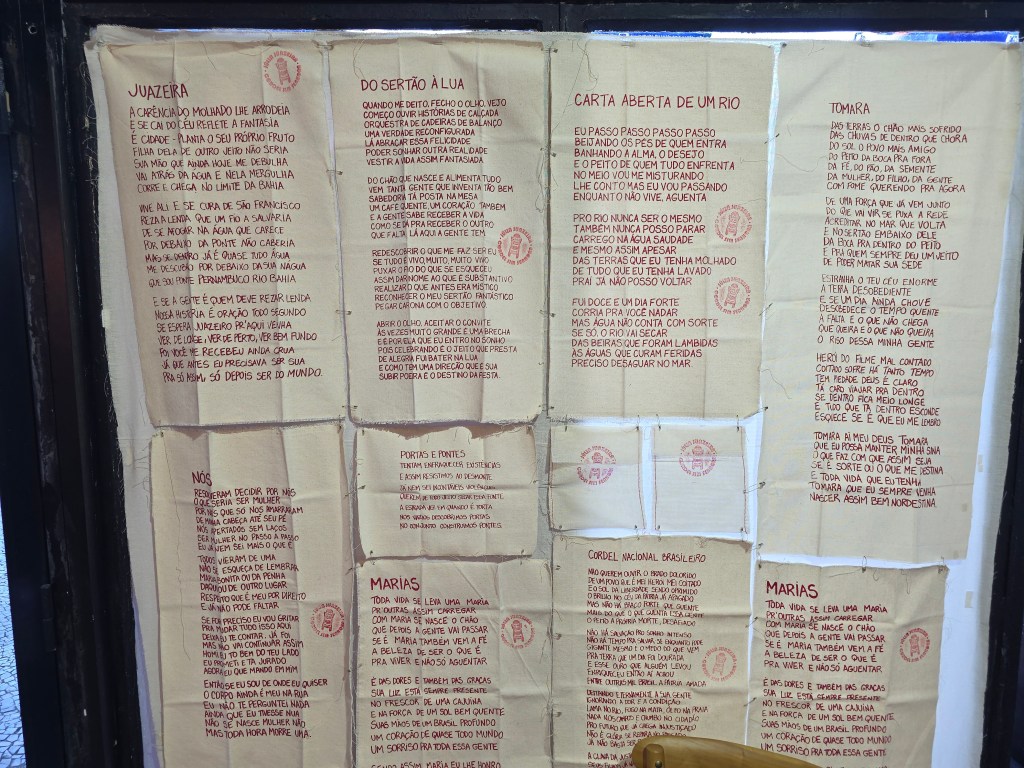 JUAZEIRA
A CARÊNCIA DO MOLHADO LHE ARRODEIA
E SE CAI DO CÉU REFLETE A FANTASIA
É CIDADE - PLANTA O SEU PRÓPRIO FRUTO
FILHA DELA DE OUTRO JEITO NÃO SERIA
SUA MÃO QUE AINDA HOJE ME DEBULHA
VAI ATRÁS DA ÁGUA E NELA MERGULHA
CORRE E CHEGA NO LIMITE DA BAHIA
VIVE ALI E SE CURA DE SÃO FRANCISCO
REZA A LENDA QUE UM FIO A SALVARIA
DE SE AFOGAR NA ÁGUA QUE CARECE
POR DEBAIXO DA PONTE NÃO CABERIA
MAS SE DENTRO JÁ É QUASE TUDO ÁGUA
ME DESCUBRO POR DEBAIXO DA SUA NAGUA
QUE SOU PONTE PERNAMBUCO RIO BAHIA
E SE A GENTE É QUEM DEVE REZAR LENDA
NOSSA HISTÓRIA É ORAÇÃO TODO SEGUNDO
SE ESPERA JUAZEIRO PR'AQUI VENHA
VER DE LONGE, VER DE PERTO, VER BEM FUNDO
FOI VOCÊ ME RECEBEU AINDA CRUA
JÁ QUE ANTES EU PRECISAVA SER SUA
PRA SÓ ASSIM, SÓ DEPOIS SER DO MUNDO.
DO SERTÃO À LUA
QUANDO ME DEITO, FECHO O OLHO, VEJO
COMEÇO OUVIR HISTÓRIAS DE CALÇADA
ORQUESTRA DE CADEIRAS DE BALANÇO
UMA VERDADE RECONFIGURADA
LÁ ABRAÇAR ESSA FELICIDADE
PODER SONHAR OUTRA REALIDADE
VESTIR A VIDA ASSIM FANTASIADA
DO CHÃO QUE NASCE E ALIMENTA TUDO
VEM TANTA GENTE QUE INVENTA TÃO BEM
SABEDORIA TÁ POSTA NA MESA
UM CAFÉ QUENTE, UM CORAÇÃO TAMBÉM
E A GENTE SABE RECEBER A VIDA
COMO SE DÁ PRA RECEBER O OUTRO
QUE FALTA LÁ AQUI A GENTE TEM
REDESCOBRIR O QUE ME FAZ SER EU
SE TUDO É VIVO, MUITO, MUITO VIVO
PUXAR O RIO DO QUE SE ESQUECEU
ASSIM DAR NOME AO QUE É SUBSTANTIVO
REALIZAR O QUE ANTES ERA MÍSTICO
RECONHECER O MEU SERTÃO FANTÁSTICO
PEGAR CARONA COM O OBJETIVO.
ABRIR O OLHO, ACEITAR O CONVITE
ÀS VEZES MUITO GRANDE É UMA BRECHA
E É POR ELA QUE EU ENTRO NO SONHO
POIS CELEBRANDO É O JEITO QUE PRESTA
DE ALEGRIA FUI BATER NA LUA
E COMO TEM UMA DIREÇÃO QUE É SUA
SUBIR POEIRA É O DESTINO DA FESTA.
CARTA ABERTA DE UM RIO
EU PASSO PASSO PASSO PASSO
BEIJANDO OS PÉS DE QUEM ENTRA
BANHANDO A ALMA, O DESEJO
E O PEITO DE QUEM TUDO ENFRENTA
NO MEIO VOU ME MISTURANDO
LHE CONTO MAS EU VOU PASSANDO
ENQUANTO NÃO VIVE, AGUENTA
PRO RIO NUNCA SER O MESMO
TAMBÉM NUNCA POSSO PARAR
CARREGO NA ÁGUA SAUDADE
E MESMO ASSIM APESAR
DAS TERRAS QUE EU TENHA MOLHADO
DE TUDO QUE EU TENHA LAVADO
PRA I JÁ NÃO POSSO VOLTAR
FUI DOCE E UM DIA FORTE
CORRIA PRA VOCÊ NADAR
MAS ÁGUA NÃO CONTA COM SORTE
SE SÓ, O RIO VAI SECAR
DAS BEIRAS QUE FORAM LAMBIDAS
AS ÁGUAS QUE CURAM FERIDAS
PRECISO DESAGUAR NO MAR.
TOMARA
DAS TERRAS O CHÃO MAIS SOFRIDO
DAS CHUVAS DE DENTRO QUE CHORA
DO SOL O POVO MAIS AMIGO
DO PEITO DA BOCA PRA FORA
DA FÉ, DO PÃO, DA SEMENTE
DA MULHER, DO FILHO, DA GENTE
COM FOME QUERENDO PRA AGORA
DE UMA FORÇA QUE JÁ VEM JUNTO
DO QUE VAI VIR SE PUXA A REDE
ACREDITAR NO MAR QUE VOLTA
E NO SERTÃO EMBAIXO DELE
DA BOCA PRA DENTRO DO PEITO
E PRA QUEM SEMPRE DEU UM JEITO
DE PODER MATAR SUA SEDE
ESTRANHA O TEU CÉU ENORME
A TERRA DESOBEDIENTE
E SE UM DIA AINDA CHOVE
DESOBEDECE O TEMPO QUENTE
A FALTA É O QUE NÃO CHEGA
QUE QUEIRA E O QUE NÃO QUEIRA
O RISO DESSA MINHA GENTE
HERÓI DO FILME MAL CONTADO
COITADO SOFRE HÁ TANTO TEMPO
TEM PIEDADE DEUS É CLARO
TÁ CARO VIAJAR PRA DENTRO
SE DENTRO FICA MEIO LONGE
E TUDO QUE TÁ DENTRO ESCONDE
ESQUECE SE É QUE EU ME LEMBRO
TOMARA AI MEU DEUS TOMARA
QUE EU POSSA MANTER MINHA SINA
O QUE FAZ COM QUE ASSIM SEJA
SE É SORTE OU O QUE ME DESTINA
E TODA VIDA QUE EU TENHA
TOMARA QUE EU SEMPRE VENHA
NASCER ASSIM BEM NORDESTINA.
NÓS
RESOLVERAM DECIDIR POR NÓS
O QUE SERIA SER MULHER
POR NÓS QUE SÓ NOS AMARRARAM
DE MINHA CABEÇA ATÉ SEU PÉ
NÓS APERTADOS SEM LAÇOS
SER MULHER NO PASSO A PASSO
EU JÁ NEM SEI MAIS O QUE É
TODOS VIERAM DE UMA
NÃO SE ESQUEÇA DE LEMBRAR
MARIA BONITA OU DA PENHA
DAQUI OU DE OUTRO LUGAR
RESPEITO QUE É MEU POR DIREITO
E JÁ NÃO PODE FALTAR
SE FOR PRECISO EU VOU GRITAR
PRA MUDAR TUDO ISSO AQUI
DEIXA EU TE CONTAR, JÁ FOI
MAS NÃO VAI CONTINUAR ASSIM
HOMEM EU TÔ BEM DO TEU LADO
EU PROMETI E TÁ JURADO
AGORA EU QUE MANDO EM MIM
ENTÃO SE EU SOU DE ONDE EU QUISER
O CURPO AINDA É MEU NA RUA
EU NÃO TE PERGUNTEI NADA
AINDA QUE EU TIVESSE NUA
NÃO SE NASCE MULHER NÃO
MAS TODA HORA MORRE UMA.
PORTAS E PONTES
TENTAM ENFRAQUECER EXISTÊNCIAS
E ASSIM RESISTIMOS AO DESMONTE
JÁ NEM SEI INCONTÁVEIS VIOLÊNCIAS
QUEREM DE TODO JEITO SECAR ESSA FONTE
A ESTRADA VEZ EM QUANDO É TORTA
NOS VAZIOS DESCOBRIMOS PORTAS
NO CONJUNTO CONSTRUÍMOS PONTES.
MARIAS
TODA VIDA SE LEVA UMA MARIA
PR'OUTRAS ASSIM CARREGAR
COM MARIA SE NASCE O CHÃO
QUE DEPOIS A GENTE VAI PASSAR
SE É MARIA TAMBÉM VEM A FÉ
A BELEZA DE SER O QUE É
PRA VIVER E NÃO SÓ AGUENTAR
É DAS DORES E TAMBÉM DAS GRAÇAS
SUA LUZ ESTÁ SEMPRE PRESENTE
NO FRESCOR DE UMA CAJUÍNA
E NA FORÇA DE UM SOL BEM QUENTE
SUAS MÃOS DE UM BRASIL PROFUNDO
UM CORAÇÃO DE QUASE TODO MUNDO
UM SORRISO PRA TODA ESSA GENTE
SENDO ASSIM MARIA EU LHE HONRO
CORDEL NACIONAL BRASILEIRO
NÃO QUEREM OUVIR O BRADO DOLORIDO
DE UM POVO QUE É MEU HERÓI MEI COITADO
E O SOL DA LIBERDADE SENDO OPRIMIDO
O BRILHO NO CÉU DA PÁTRIA JÁ APAGADO
MAS NÃO HÁ BRAÇO FORTE QUE GUENTE
MAIS DO QUE O QUE GUENTA ESSA GENTE
O PEITO À PRÓPRIA MORTE, DESAFIADO
NÃO HÁ SALVAÇÃO PRO SONHO INTENSO
NÃO HÁ TEMPO PRA SALVAR SE ENQUANTO PUDE
GIGANTE MESMO É O MEDO DO QUE VEM
PRA TERRA QUE UM DIA FOI DOURADA
E ESSE OURO QUE ALGUÉM LEVOU
ENRIQUECEU ENTÃO AÍ ACABOU
ENTRE OUTROS MIL BRASIL, A PÁTRIA AMADA
DEITANDO ETERNAMENTE A SUA GENTE
IGNORANDO A DOR E A CONDIÇÃO
LAMA NO RIO, FOGO NA MATA, ÓLEO NA PRAIA
MARIAS
TODA VIDA SE LEVA UMA MARIA
PR'OUTRAS ASSIM CARREGAR
COM MARIA SE NASCE O CHÃO
QUE DEPOIS A GENTE VAI PASSAR
SE É MARIA TAMBÉM VEM A FÉ
A BELEZA DE SER O QUE É
PRA VIVER E NÃO SÓ AGUENTAR
É DAS DORES E TAMBÉM DAS GRAÇAS
SUA LUZ ESTÁ SEMPRE PRESENTE
NO FRESCOR DE UMA CAJUÍNA
E NA FORÇA DE UM SOL BEM QUENTE
SUAS MÃOS DE UM BRASIL PROFUNDO
UM CORAÇÃO DE QUASE TODO MUNDO
UM SORRISO PRA TODA ESSA GENTE